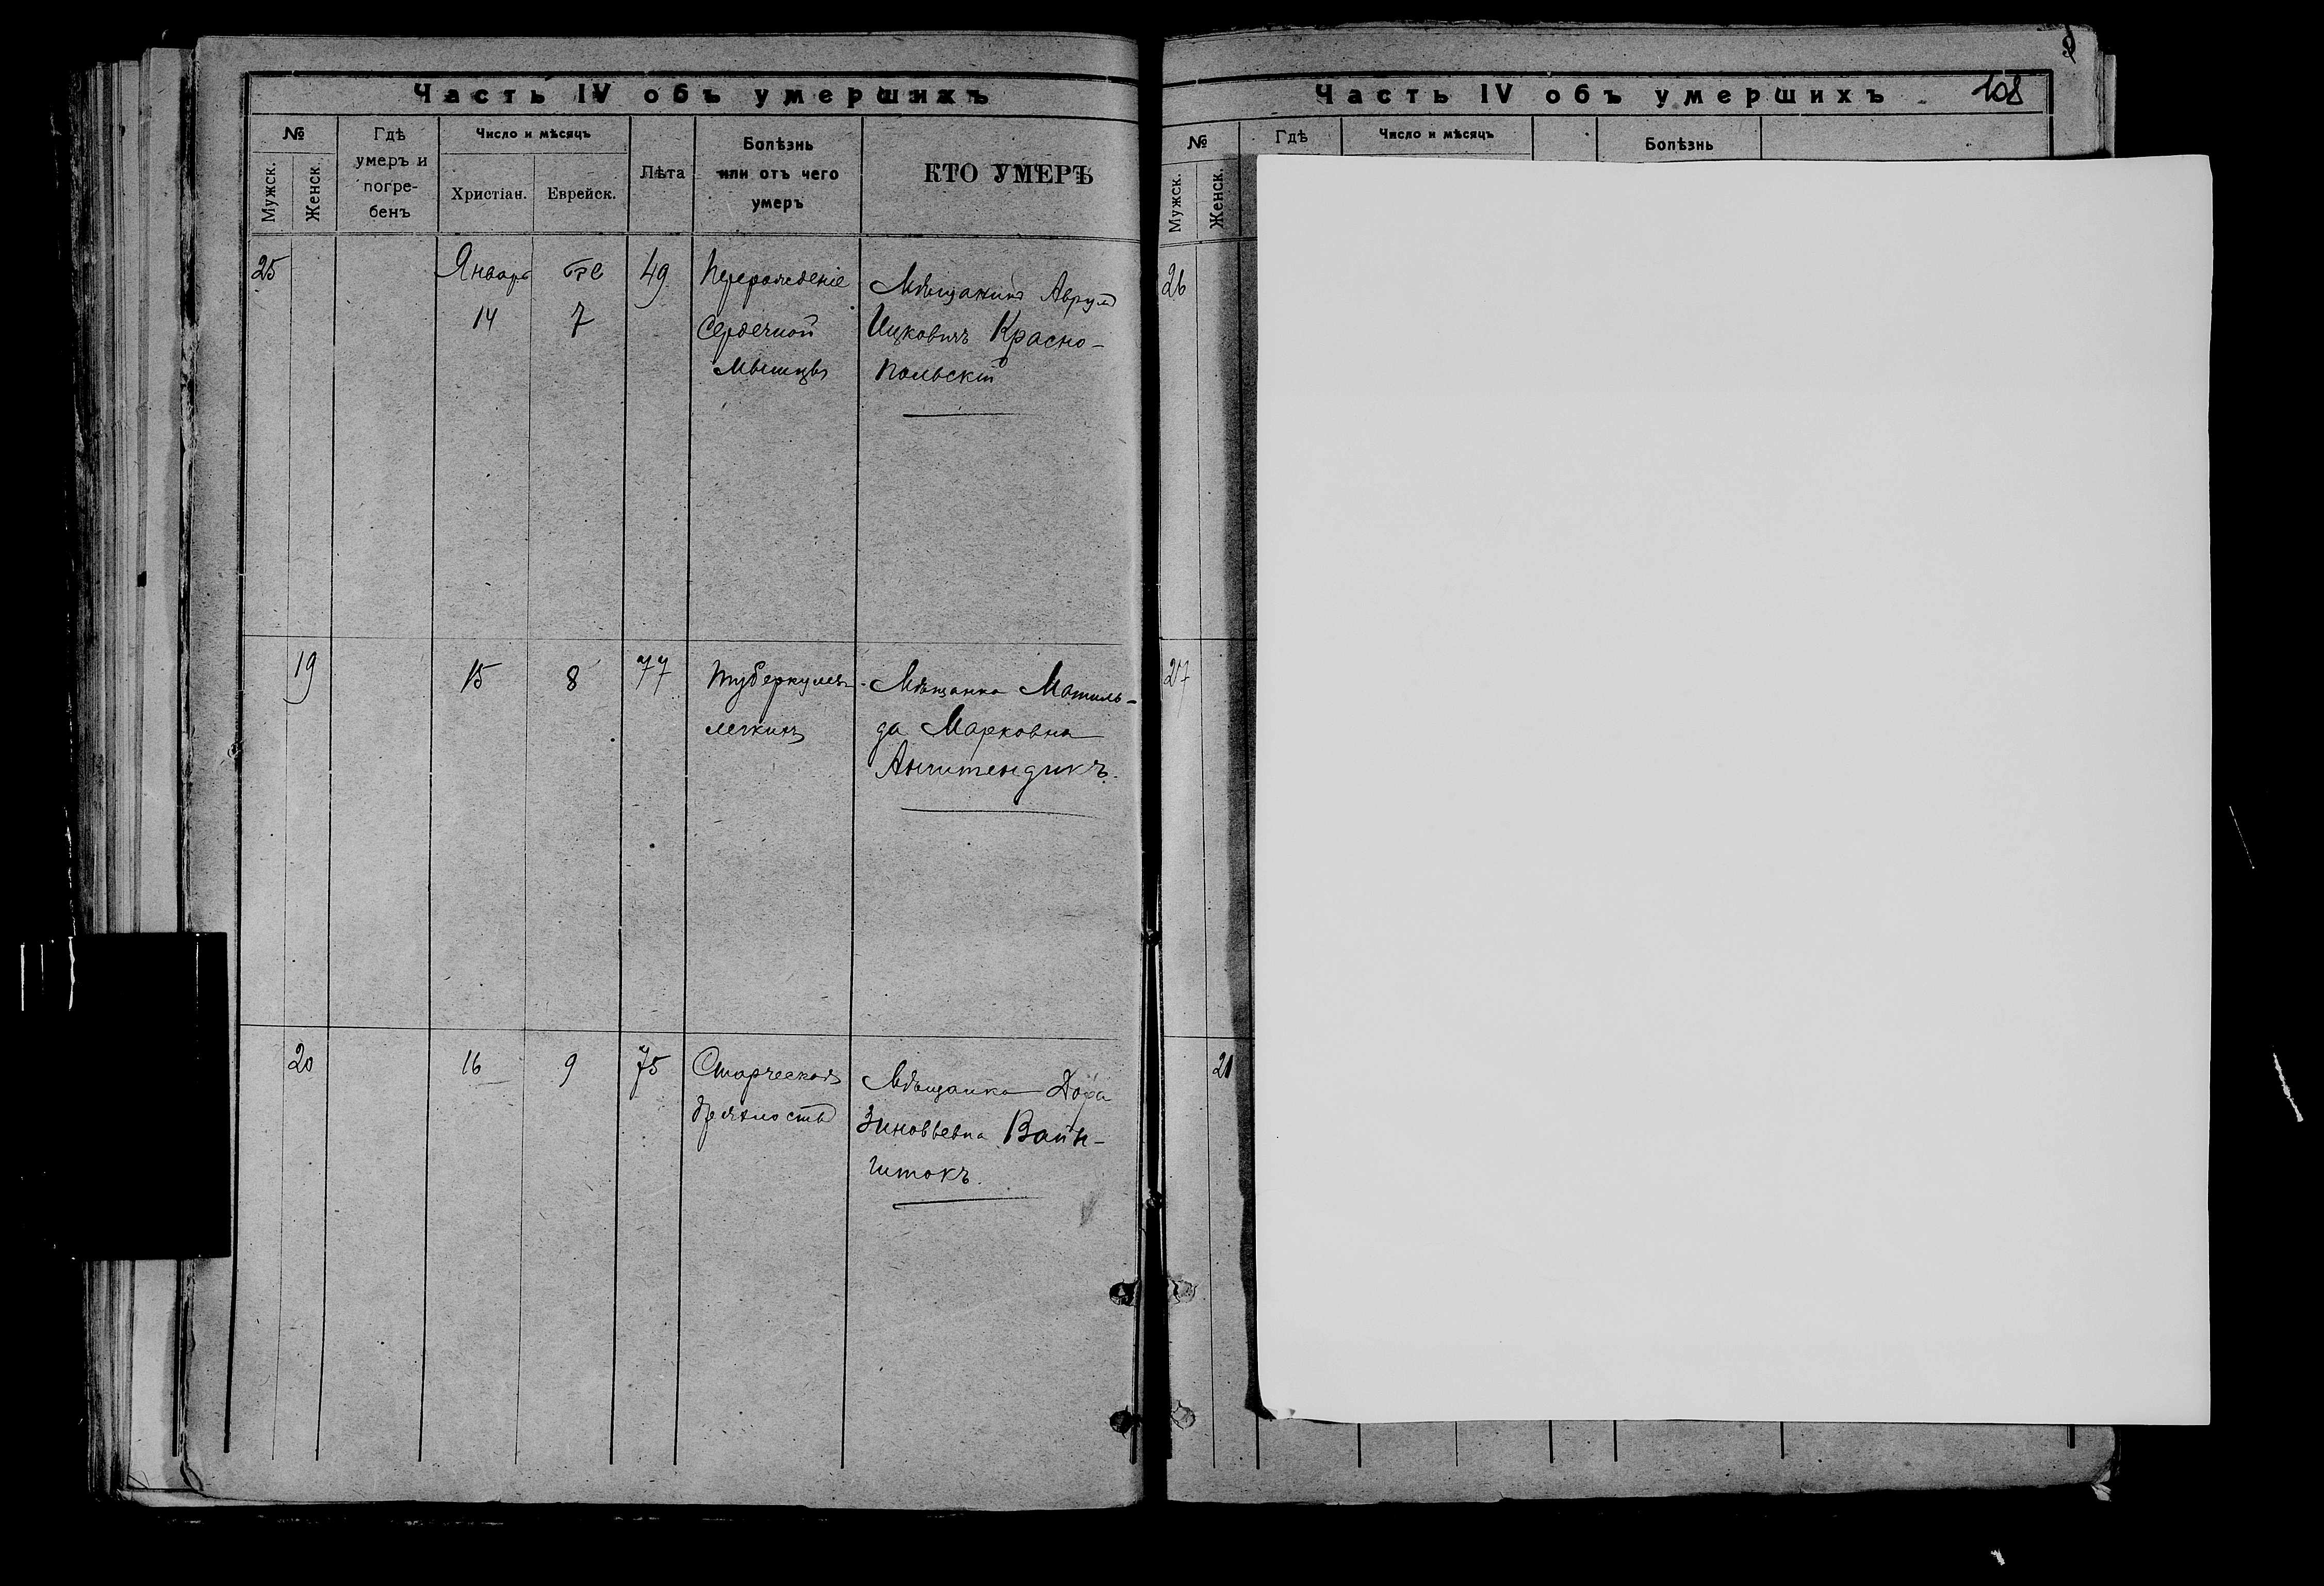 Часть IV объ умершихъ
№
Мужск.
Женск.
Гдѣ
умеръ и
погре-
бенъ
Число и мѣсяцъ
Христіан.
Еврейск.
Лѣта
Болѣзнь
или отъ чего
умеръ
КТО УМЕРЪ
25
Января
14
7
49
Перерожденіе
Сердечной
Мышцы
Мѣщанинъ Аврумъ
Ицковичъ Красно-
польскій
19
15
8
77
Туберкулезъ
легкихъ
Мѣщанка Матиль-
да Марковна
20
16
9
75
Старческая
дряхлость
Мѣщанка Дора
Зиновьевна Вайн-
штокъ.
108
Часть IV объ умершихъ
№
Мужск.
Женск.
Гдѣ
Число и мѣсяцъ
Болѣзнь
26
27
21